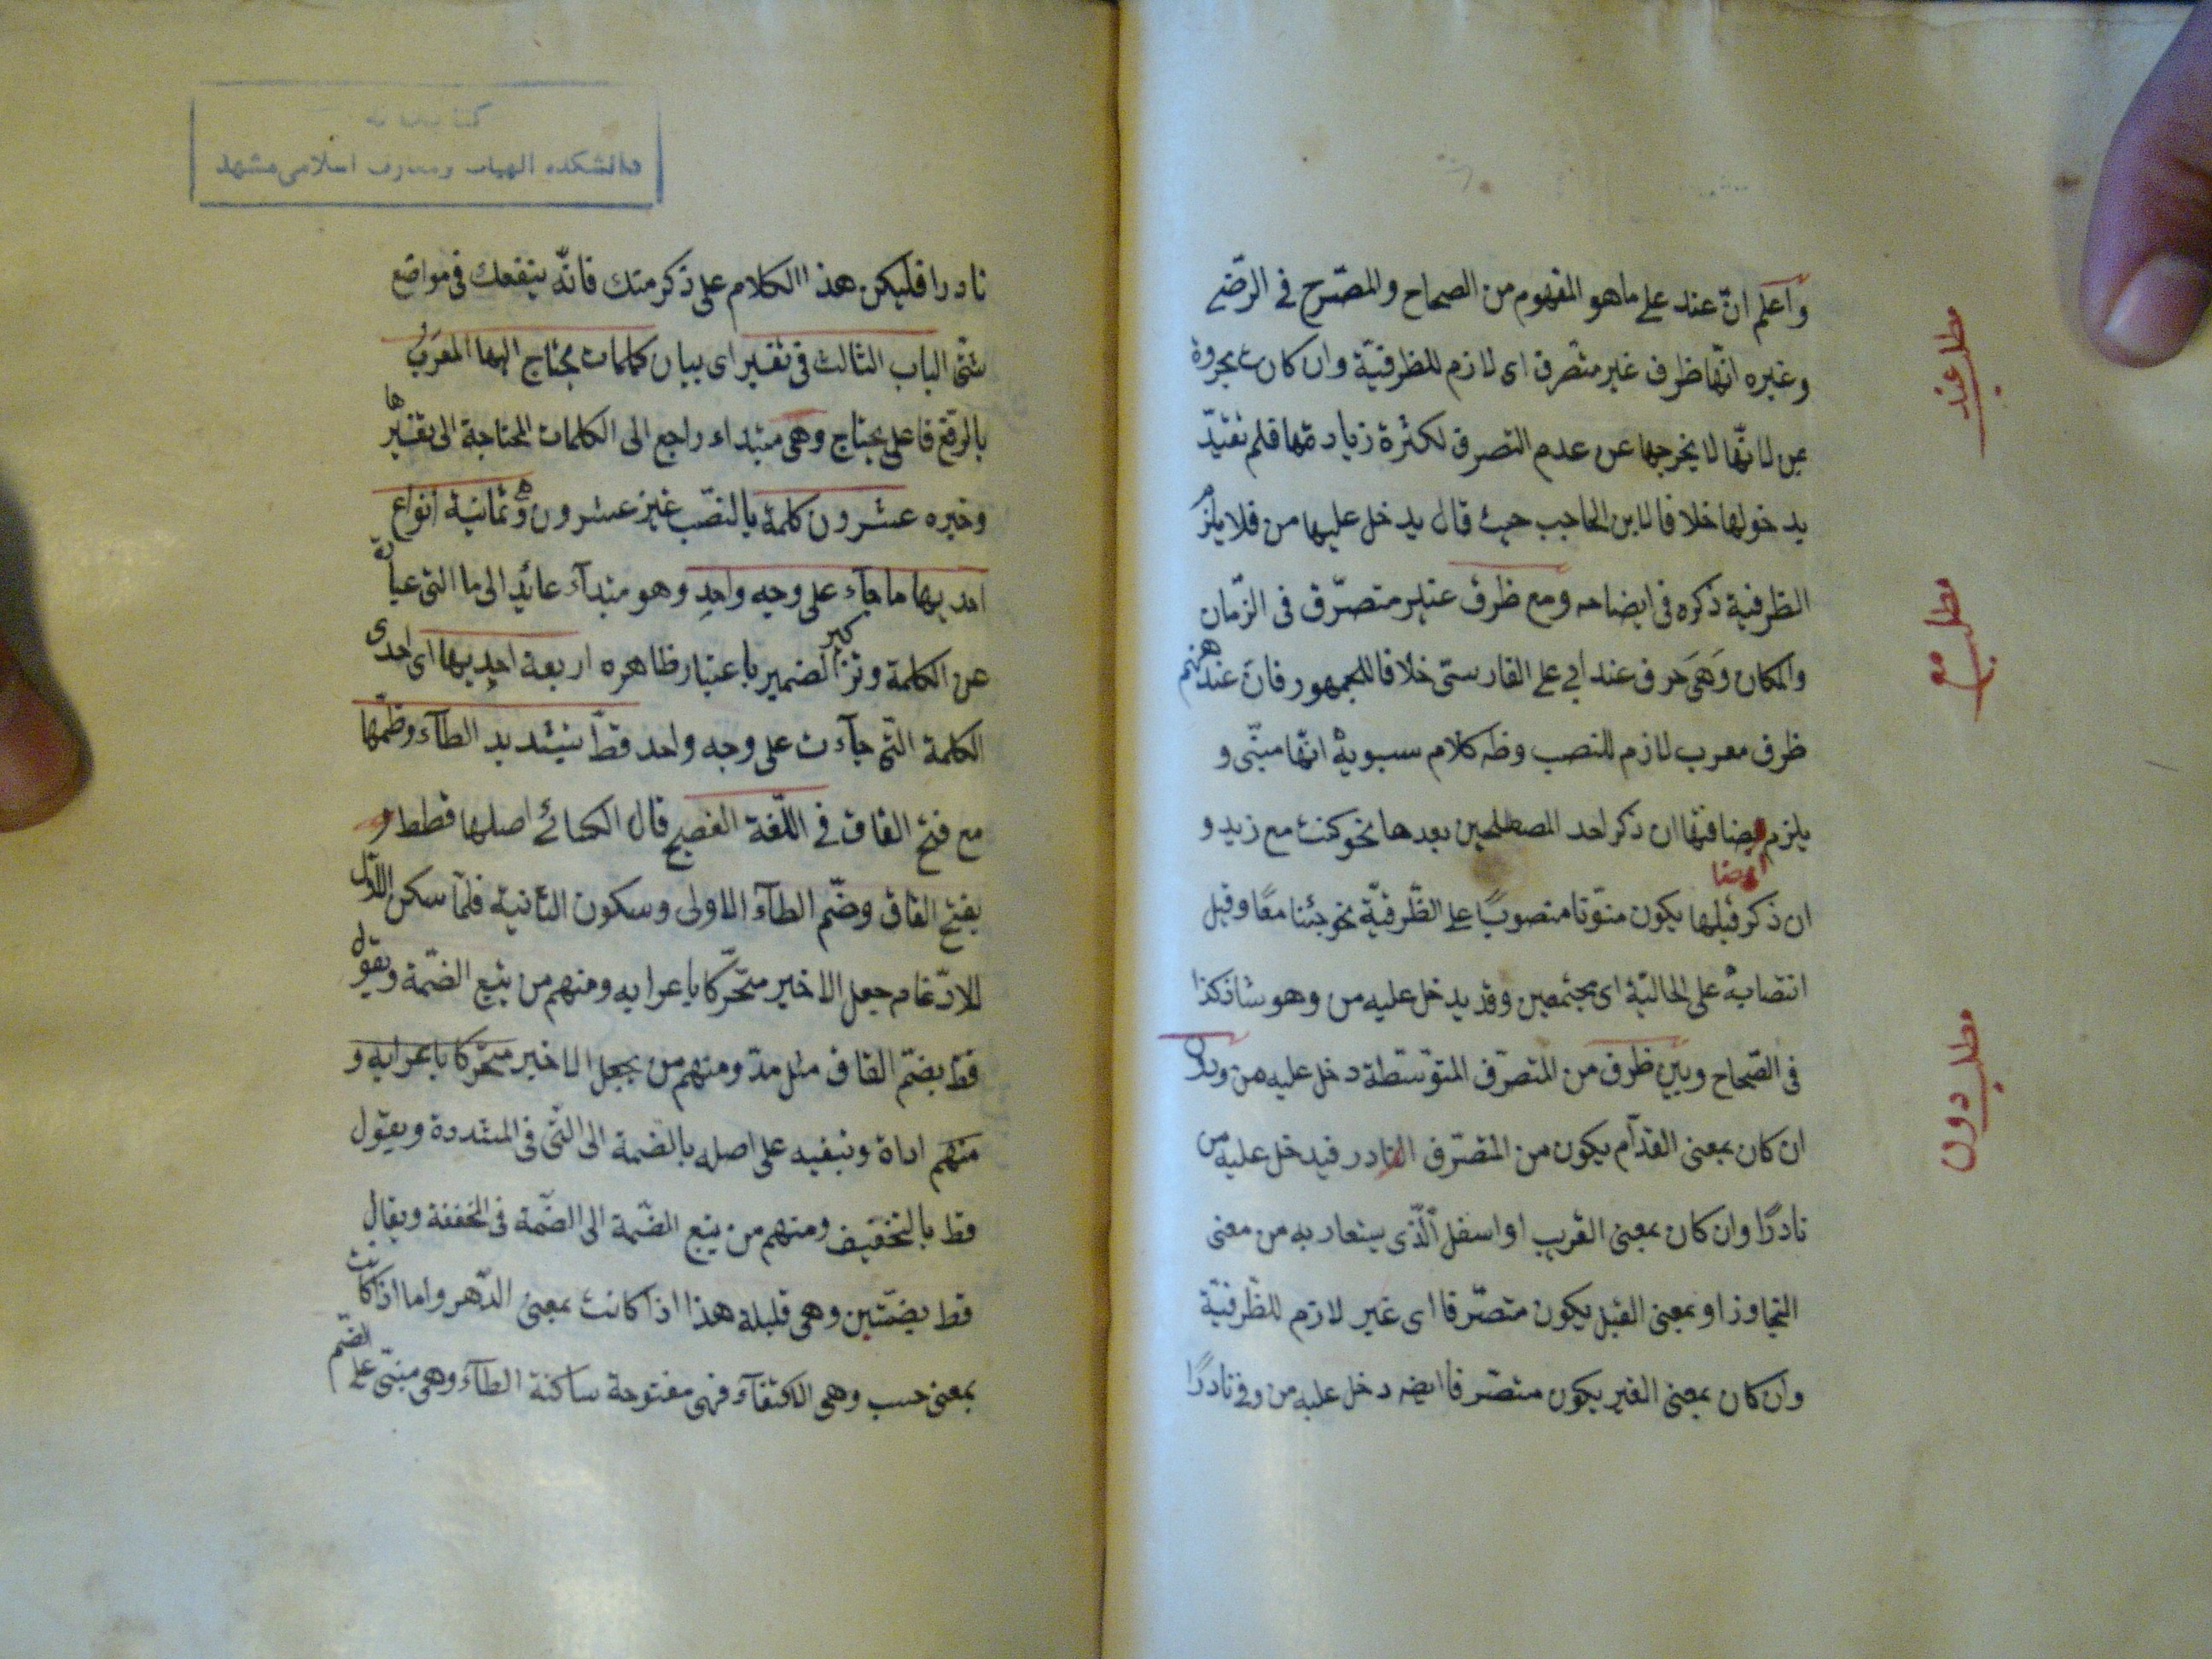 واعلم انّ عند على ما هو المفهوم من الصحاح والمصّرح فى الرّضى
وغيره انّها ظرف غير متصّرف اى لازم للظرفيّة وان كانت مجرورة
بمن لانّها لا يخرجها عن عدم التصرف لكثرة زيادتها فلم تفتيدّ
بدخولها خلافا لابن الحاجب حيث قال يدخل عليها من فلا يلزم
الظرفية ذكره فى ايضاحه ومع ظرف غير متصرّف فى الزّمان
والمكان وَهىَ حرف عند ابي على الفارستى خلافا للجمهور فانّ عندهم
ظرف معرب لازم للنصب وظه كلام سبويه انّها مبنّى و
يلزم اضافتها ان ذكر احد المصطلحين بعدها نحو كنت مع زيد و
ايضا
ان ذكر قبلها يكون منوّنا منصوبًا على الظّرفيّة نحو جئنا معًا وقيل
انتصابه على الحاليّة اى مجتمعين وقد يدخل عليه من وهو شاذ كذا
فى الصّحاح وبين ظرف من المتصرّف المتوّسّطة دخل عليه من ودون
ان كان بمعنى القدّام يكون من المتصّرف النادر فيدخل عليه من
نادرًا وان كان بمعنى القرب او اسفل الّذى يستعار به من معنى
التجاوز او بمعنى القبل يكون متصّرفا اى غير لازم للظّرفيّة
وان كان بمعنى الغير يكون متصّرفا ايضه دخل عليه من وفى نادرًا
مطلب عند
مطلب مع
مطلب دون
كتابخانه
دانشكده الهيات ومعارف اسلامى مشهد
نادرا فليكن هذا الكلام على ذكر منك فانّه ينفعك فى مواضع
شتّى الباب الثالث فى تفسير اى بيان كلمات يحتاج اليها المعرَبُ
بالرّفع فاعل يحتاج وهى مبتداء راجع الى الكلمات المحتاجة الى تفسيرها
وخبره عشرون كلمة بالنصّب غيز عشرون وهى ثمانية انواع
احديها ما جآء على وجهٍ واحدٍ وهو مبتدآء عائد الى ما التى عبارة
عن الكلمة وتذكير الضمير باعتبار ظاهره اربعة احديها اى احدى
الكلمة التّى جآءت على وجه واحد قطّ بتشديد الطآء وظمّها
مع فتح القاف فى اللّغة الفصيح قال الكسائى اصلها قطط و
بفتح القاف وضّم الطآء الاولى وسكون الثانية فلمّا سكن الاوّل
للادّغام جعل الاخير متحّركا باعرابه ومنهم من يتبع الضمّة ويقول
قطّ بضمّ القاف مثل مدّ ومنهم من يجعل الاخير متحرّكا باعرابه و
منهم اداة وتبقيه على اصله بالضمة الى التّى فى المشددة ويقول
قط بالتخفيف ومنهم من يتبع الضمّمة الى الضّمة فى المخففة ويقال
قط بضمّتين وهى قليلة هذا اذا كانت بمعنى الدّهر واما اذا كانت
بمعنى حسب وهى الاكتفآء فهى مفتوحة ساكنة الطآء وهى مبنّى على الضّم